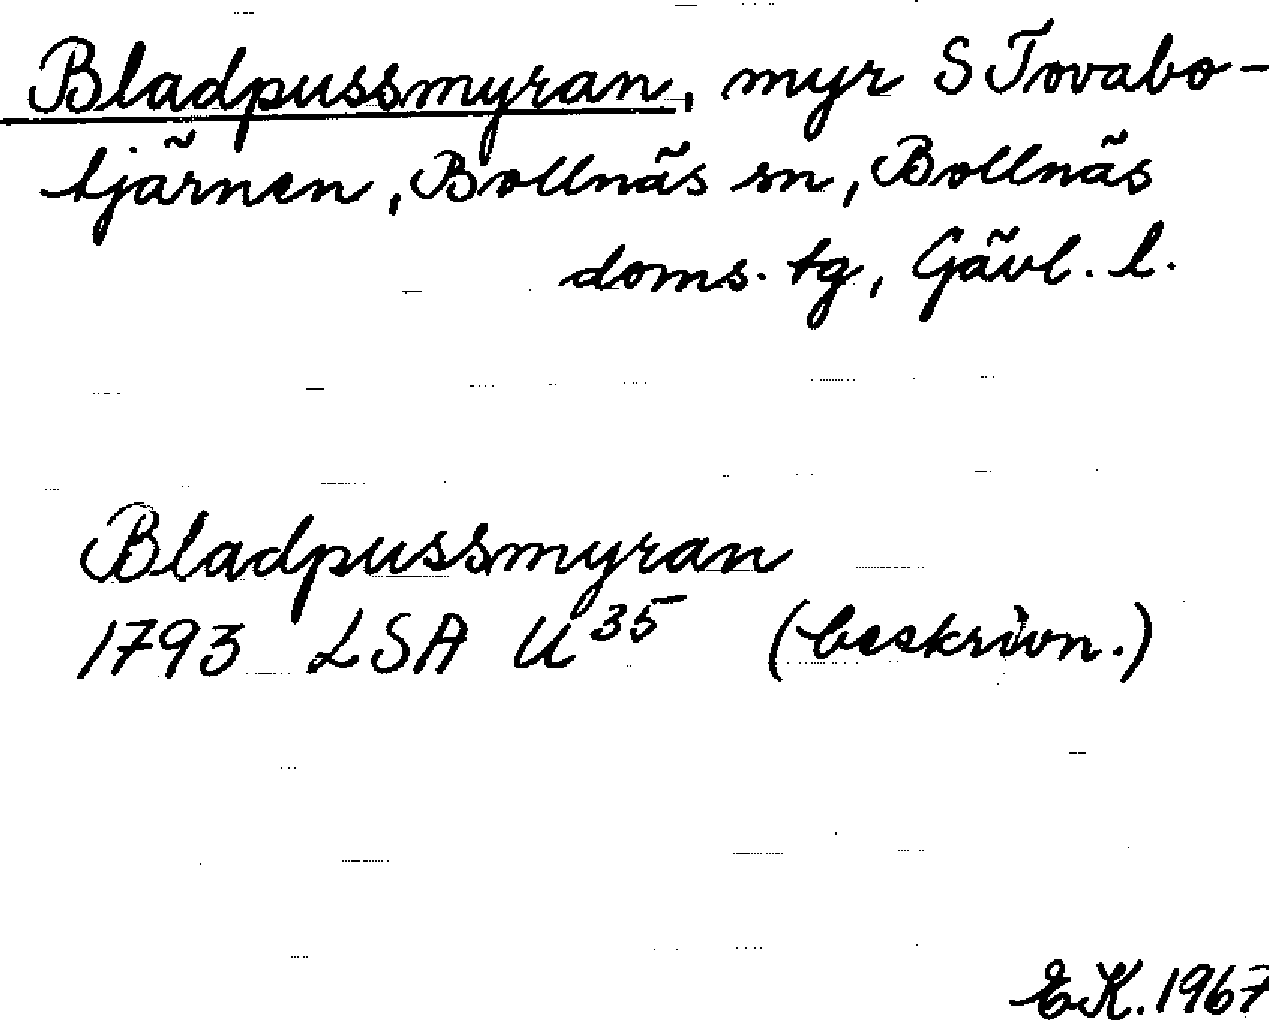 Bladpussmyran, myr S Tovabo-
tjärnen, Bollnäs sn, Bollnäs
doms. tg, Gävl. l.
Bladpussmyran
1793 LSA U 35 (beskrivn.)
EK. 1967